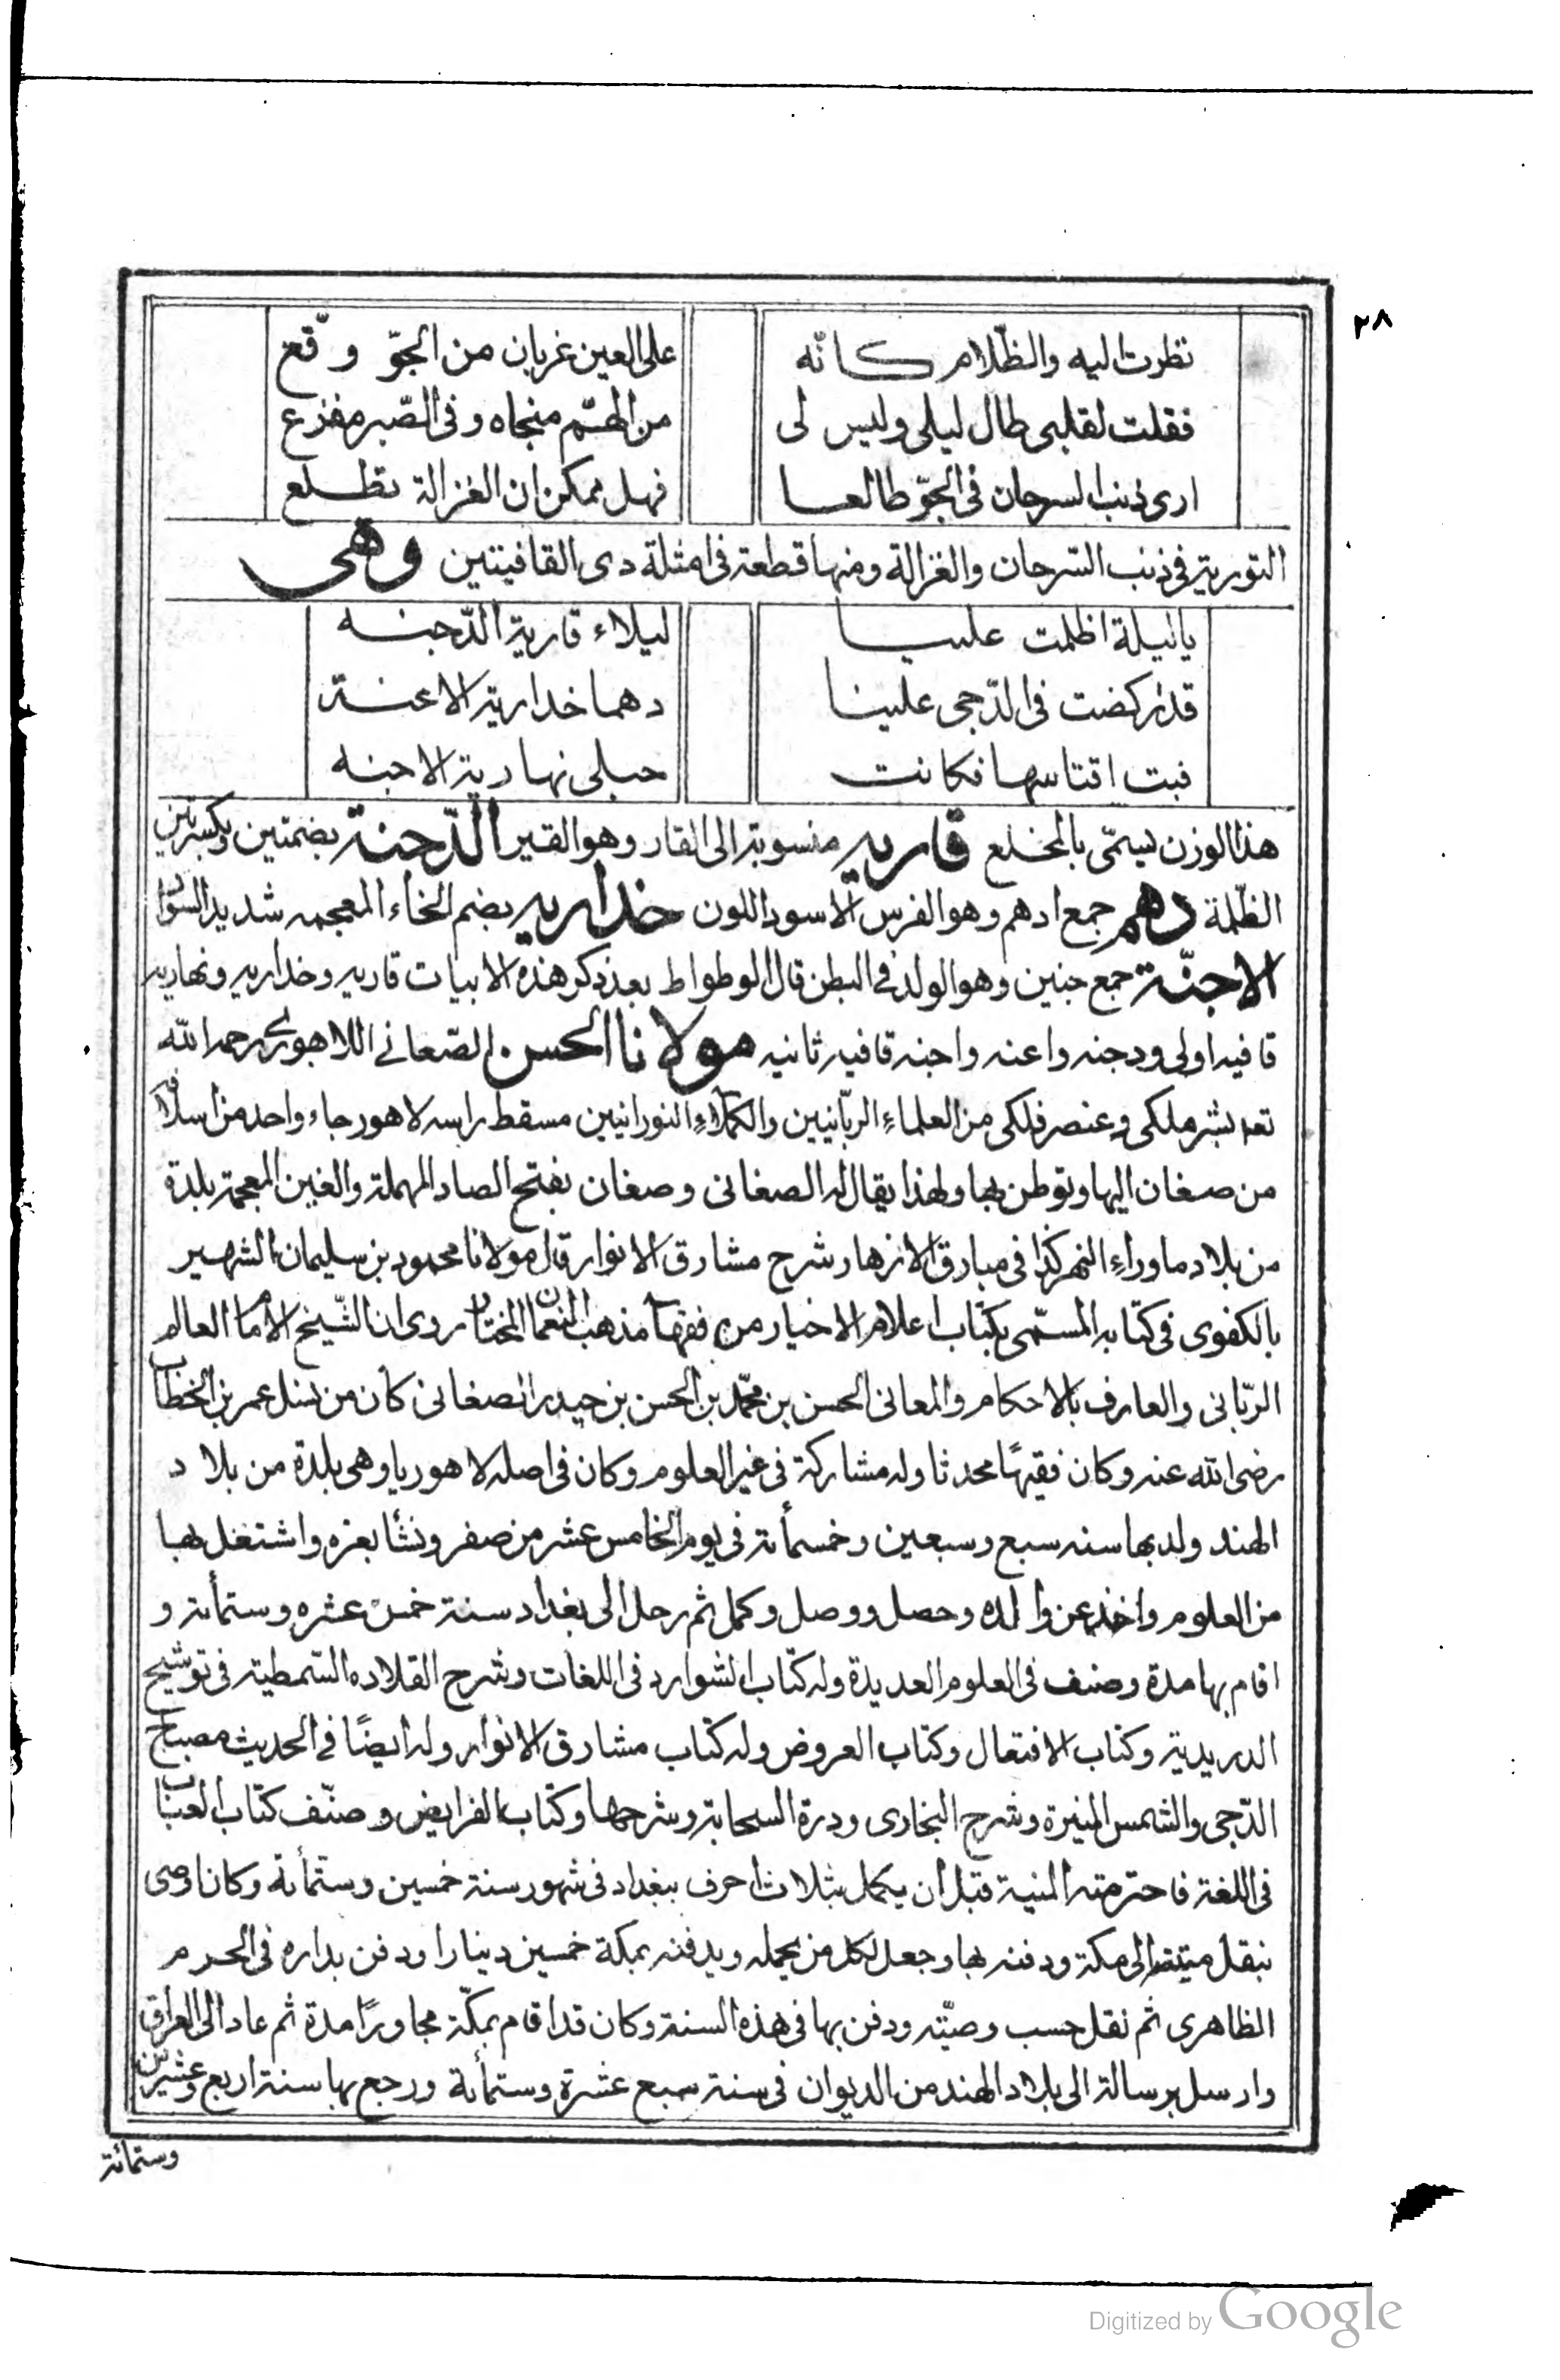 ٢٨
نظرت اليه والظّلام كانّه على العين غربان من الجوّ وقّع
فقلت لقلبى طال ليلى وليس لى من الهمّ منجاه وفى الصّبر مفزع
ارى ذنب السرحان فى الجوّ طالعا فهل ممكن ان الغزالة تطلع
التورية فى ذنب السّرحان والغزالة ومنها قطعة فى امثلة ذى القافيتين وهى
ياليلة اظلمت علينا ليلاء قارية الدّجنه
قد ركضت فى الدّجى علينا دهما خدارية الاعنة
فبت اقتاسها فكانت حبلى نهارية الاجنه
هذا الوزن يسمّى بالمخلع قاريه منسوبة الى القار وهو القير الدّجنة بضمتين وبكسرتين
الظّلمة دهم جمع ادهم وهو الفرس الاسود اللون خداريه بضم الخاء المعجمه شديد السّواد
الاجنّة جمع جنين وهو الولد فى البطن قال الوطواط بعد ذكر هذه الابيات قاريه وخداريه ونهاريه
قافيه اولى ودجنه واعنه واجنه قافيه ثانيه مولانا الحسن الصّغانى اللاهورى رحمه الله
تعه بشر ملكى وعنصر فلكى من العلماء الربّانيين والكملاء النورانيين مسقط راسه لاهور جاء واحد من اسلافه
من صغان اليها وتوطن بها ولهذا يقال له الصغانى وصغان بفتح الصاد المهملة والغين المعجمة بلدة
من بلاد ماوراء النهر كذا فى مبارق الازهار شرح مشارق الانوار قال مولانا محمود بن سليمان الشهير
بالكفوى فى كتابه المسمّى بكتاب اعلام الاخيار من فقهاء مذهب النعمان المختار روى ان الشّيخ الامام العالم
الربّانى والعارف بالاحكام والمعانى الحسن بن محمّد بن الحسن بن حيدر الصغانى كان من نسل عمر بن الخطاب
رضى الله عنه وكان فقيهًا محدثا وله مشاركة فى غير العلوم وكان فى اصله لاهوريا وهى بلدة من بلاد
الهند ولد بها سنه سبع وسبعين وخمسمأته فى يوم الخامس عشر من صفر ونشأ بغزه واشتغل بها
من العلوم واخذ عن والده وحصل ووصل وكمل ثم رحل الى بغداد سنة خمس عشره وستمأتة و
اقام بها مدة وصنف فى العلوم العديدة وله كتاب الشوارد فى اللغات وشرح القلاده السّمطية فى توشيح
الدريدية وكتاب الافتعال وكتاب العروض وله كتاب مشارق الانوار وله ايضًا فى الحديث مصباح
الدّجى والشمس المنيرة وشرح البخارى ودرة السحابة وشرحها وكتاب الفرايض وصنّف كتاب العباب
فى اللغة فاحترمته المنية قبل ان يكمل بثلاث احرف ببغداد فى شهور سنة خمسين وستمأتة وكان اوصى
بنقل ميتته الى مكة ودفنه بها وجعل لكل من يحمله ويدفنه بمكة خمسين دينارا ودفن بداره فى الحرم
الظاهرى ثم نقل حسب وصيّته ودفن بها فى هذه السنة وكان قد اقام بمكّة مجاورًا مدة ثم عاد الى العراق
وارسل برسالة الى بلاد الهند من الديوان فى سنة سبع عشرة وستمأتة ورجع بها سنة اربع وعشرين
وستمائة
Digitized by Google